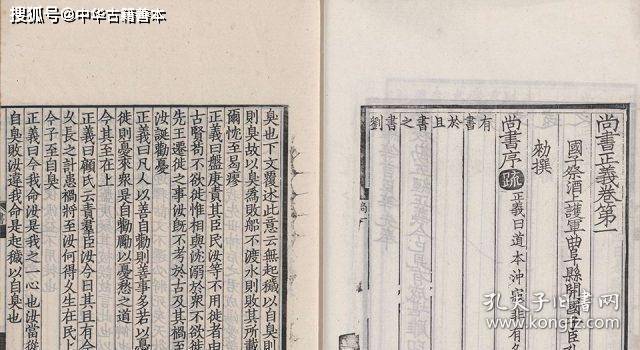 搜狐号@中华古籍善本
尚書正義卷第一
國子祭酒上護軍曲阜縣開國子臣
勑撰
尚書序 疏 正義曰道本沖寂非有名
有書於且書之書劉
臭也下文覆述此意云無起穢以自臭則
則臭故以臭為敗船不渡水則敗其所載
爾忱至曷瘳
正義曰盤庚責其臣民汝等不用徙者由
古賢苟不欲徙惟相與沈溺於衆不欲徙
先王遷徙之事汝既不考於古及其禍至
汝誕勸憂
正義曰凡人以善自勸則善事多若以憂
徙則憂來衆是自勸勵以憂愁之道
今其至在上
正義曰顧氏云責羣臣汝今日其且有今
久長之計患禍將至汝何得久生在民上
今予至自臭
正義曰今我命汝是我之一心也汝當從
自臭敗汝違我命是起穢以自臭也
孔夫子旧书网
www.kongfz.com